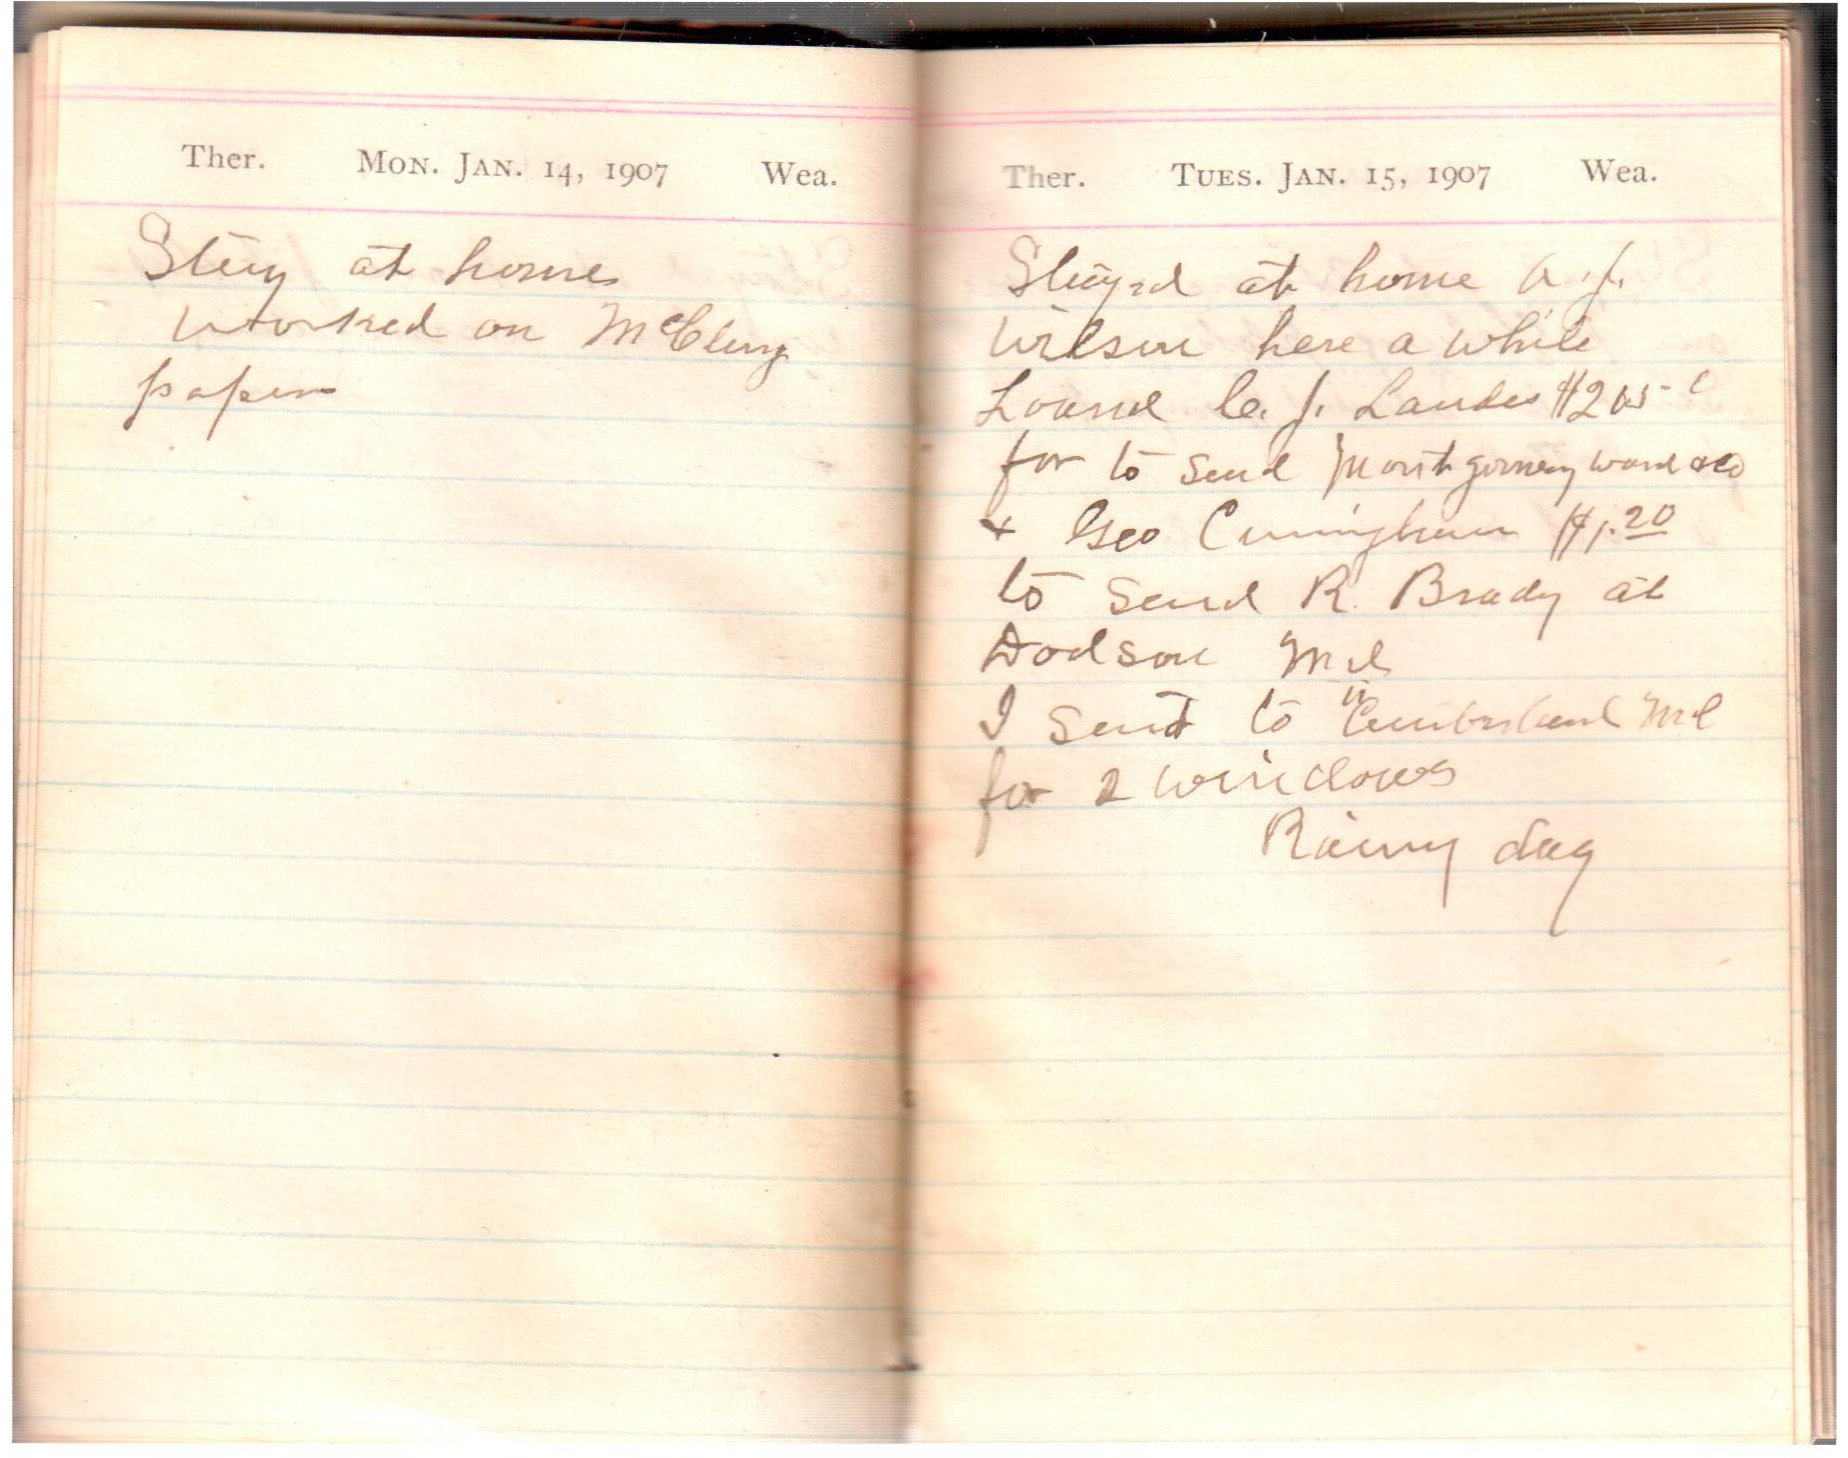 Ther. MON. JAN. 14, 1907 Wea.
Stay at home
worked on McClung
papers
Ther. TUES. JAN. 15, 1907 Wea.
Stayed at home A. J.
Wilson here a while
Loand C. J. Landes
for to send Montgomery ward & Co
+ Geo Cuningham $1.20
to send R. Brady at
Dodson Md
I sent to Cumberland Md
for 2 windows
Rainy day